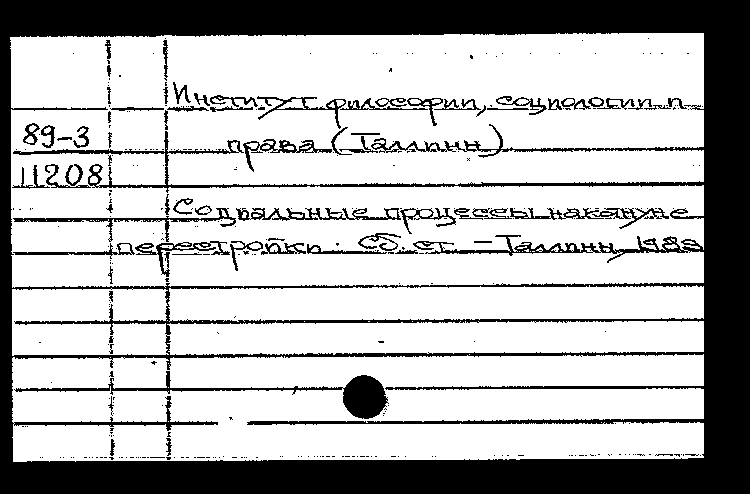 Институт философии, социологии и
89-3 права (Таллинн).
11208
Социальные процессы накануне
перестройки: Сб. ст. - Таллинн, 1988